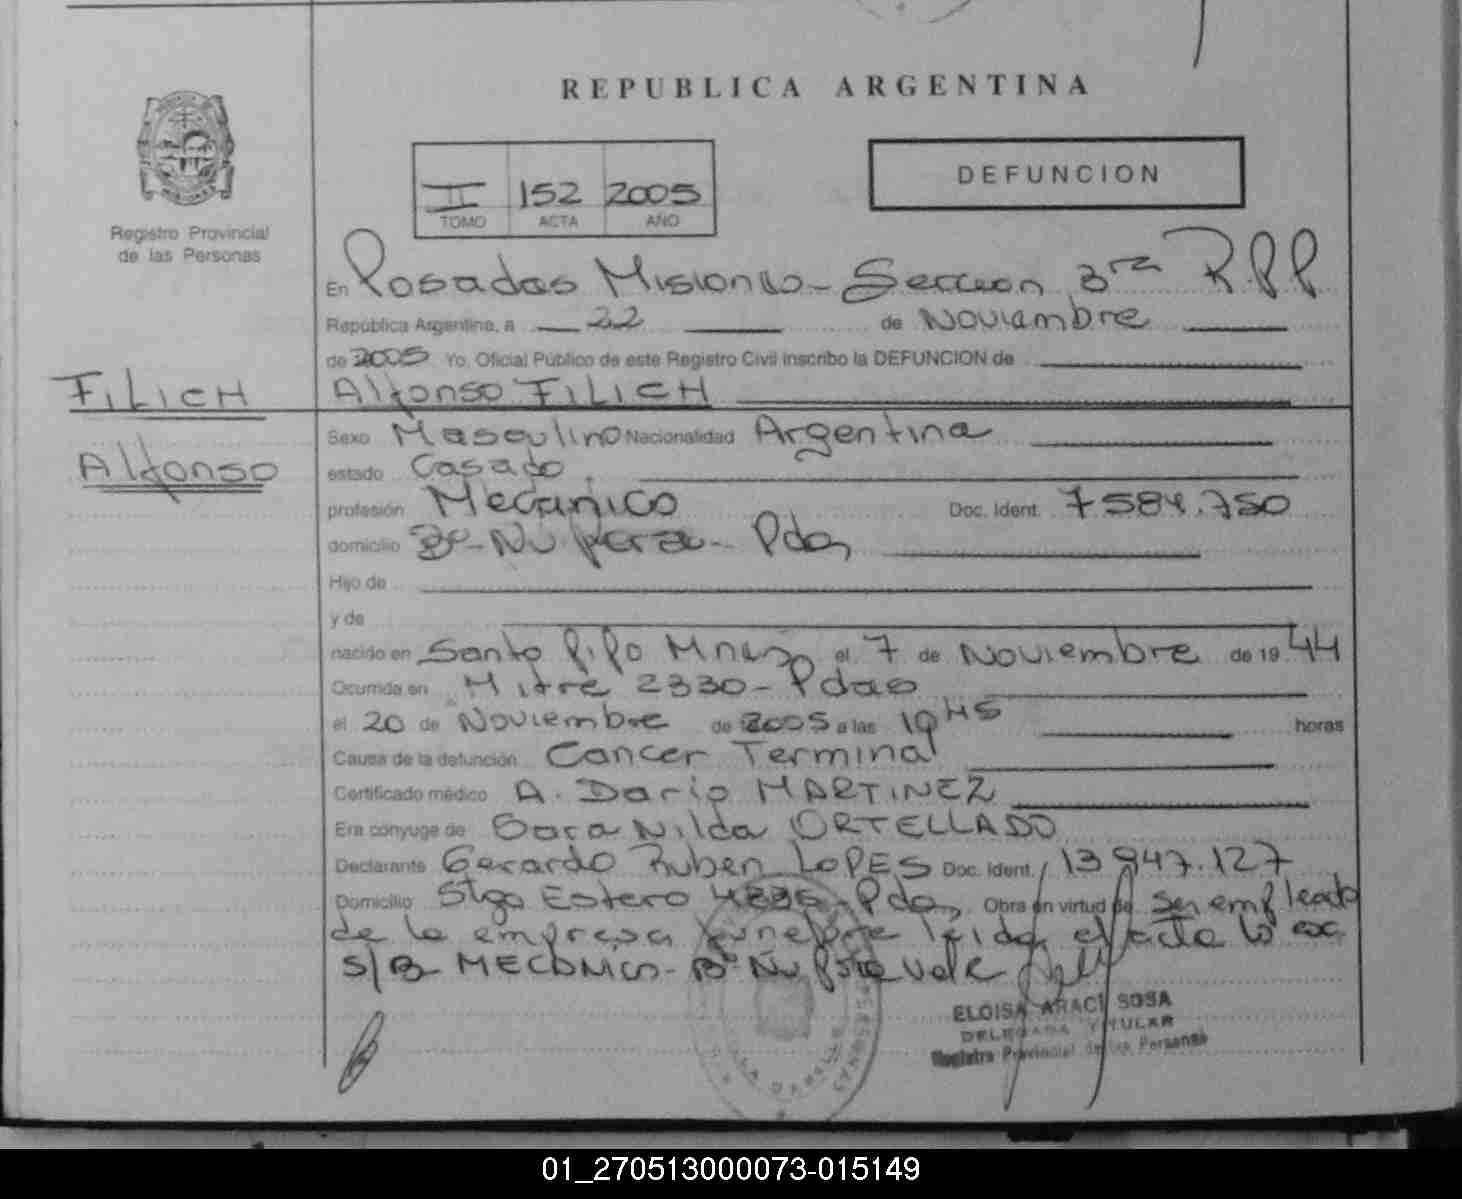 REPUBLICA ARGENTINA
DEFUNCION
II 152 2005
TOMO ACTA AÑO
Registro Provincial
de las Personas
En Posadas Misiones - Seccion 3ra R.P.P
República Argentina, a 22 de Noviembre
de 2005 Yo, Oficial Público de este Registro Civil inscribo la DEFUNCION de
FILICH
Alfonso FILICH
Alfonso
Sexo Masculino Nacionalidad Argentina
estado Casado
profesión Mecanico Doc. Ident. 7.584.750
domicilio Pdas
Hijo de
y de
nacido en Santo Pipo Mnes el 7 de Noviembre de 19 44
Ocurrida en Mitre 2330 - Pdas
el 20 de Noviembre de 2005 a las 19 HS horas
Causa de la defunción Cancer Terminal
Certificado médico A. Dario MARTINEZ
Era cónyuge de Sara Nilda ORTELLADO
Declarante Gerardo Ruben LOPES Doc. Ident. 13.947.127
Domicilio Stgo Estero Pdas Obra en virtud de ser empleado
de la empresa funebre leida el acta
S/B MECANICO - Vale
ELOISA ARACI SOSA
DELEGADA TITULAR
Registro Provincial de las Personas
01_270513000073-015149